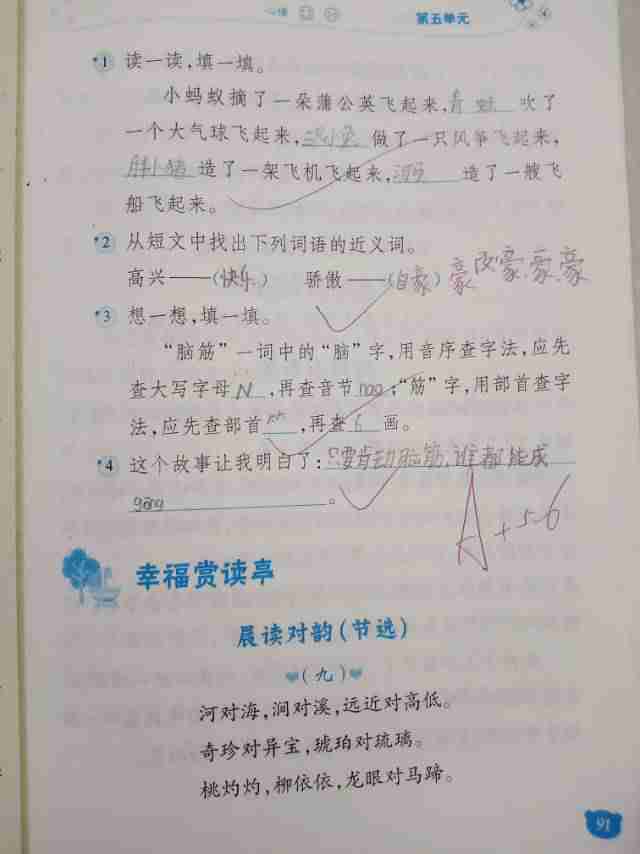 第五单元
1 读一读,填一填。
小蚂蚁摘了一朵蒲公英飞起来,青蛙吹了
一个大气球飞起来,做了一只风筝飞起来,
胖小猪造了一架飞机飞起来,造了一艘飞
船飞起来。
2 从短文中找出下列词语的近义词。
高兴——(快乐) 骄傲——(自豪)豪 改豪、豪、豪
3 想一想,填一填。
“脑筋”一词中的“脑”字,用音序查字法,应先
查大写字母N,再查音节nao;“筋”字,用部首查字
法,应先查部首⺮,再查6画。
4 这个故事让我明白了:只要肯动脑筋,谁都能成
gōng。
A+ 5-6
幸福赏读亭
晨读对韵(节选)
(九)
河对海,涧对溪,远近对高低。
奇珍对异宝,琥珀对琉璃。
桃灼灼,柳依依,龙眼对马蹄。
91